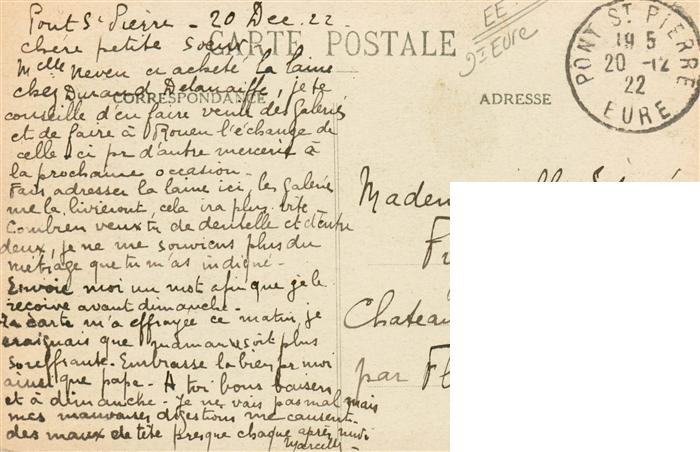 Pont St Pierre - 20 Dec. 22.
chère petite soeur
CARTE POSTALE
Melle Neveu a acheté la laine
chez Durand Delanaiffe, je te
CORRESPONDANCE
ADRESSE
conseille d'en faire venir des Galeries
et de faire à Rouen l'échange de
celle-ci pr d'autre mercerie à
la prochaine occasion.
Fais adresser la laine ici, les Galeries
me la livreront, cela ira plus vite -
Combien veux tu de dentelle et d'entre
deux, je ne me souviens plus du
métrage que tu m'as indiqué -
Envoie moi un mot afin que je le
reçoive avant dimanche -
Ta carte m'a effrayée ce matin, je
craignais que maman soit plus
souffrante. Embrasse la bien pr moi
ainsi que papa - A toi bons baisers
et à dimanche - Je ne vais pas mal mais
mes mauvaises digestions me causent
des maux de tête presque chaque après midi
Marcelle
EE
9t Eure
PONT ST PIERRE
19 5
20 -12
22
EURE
Madem
Fr
Chateau
par Fl